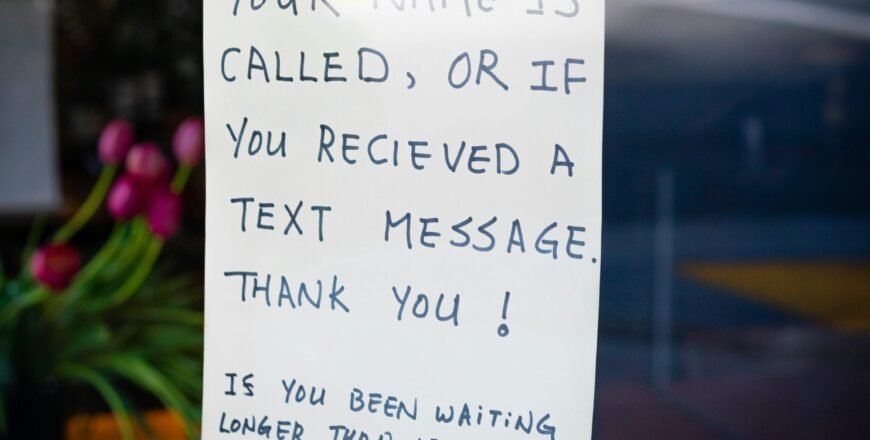 YOUR NAME IS
CALLED, OR IF
YOU RECIEVED A
TEXT MESSAGE.
THANK YOU !
IS YOU BEEN WAITING
LONGER THAN